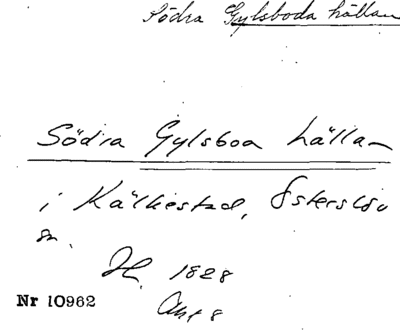 Södra Gylsboda hällan
Södra Gylsboa hälla
i Kälkestad, Österslöv
sn.
H. 1828
Akt 8
Nr 10962